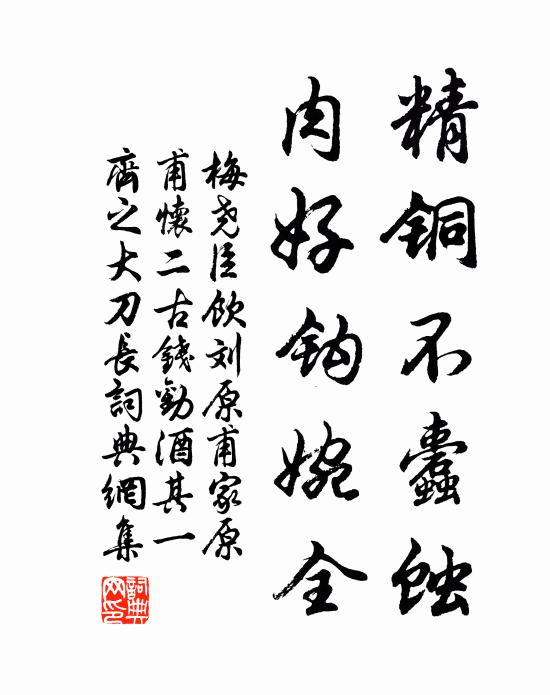 精铜不蠹蚀
肉好钩婉全
梅尧臣饮刘原甫家原
甫懷二古錢勸酒其一
齊之大刀長詞典網集
詞典网印